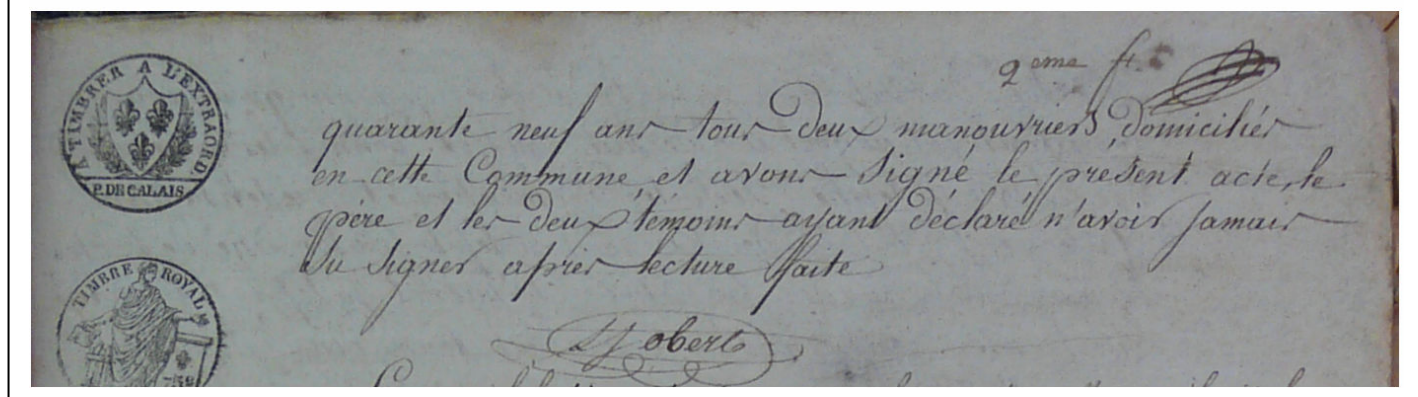 A TIMBRER A L'EXTRAORD.
P. DE CALAIS
TIMBRE ROYAL
2eme ft.
quarante neuf ans tous deux manouvriers domiciliés
en cette Commune, et avons signé le présent acte, le
père et les deux témoins ayant déclaré n'avoir jamais
su signer après lecture faite
obert